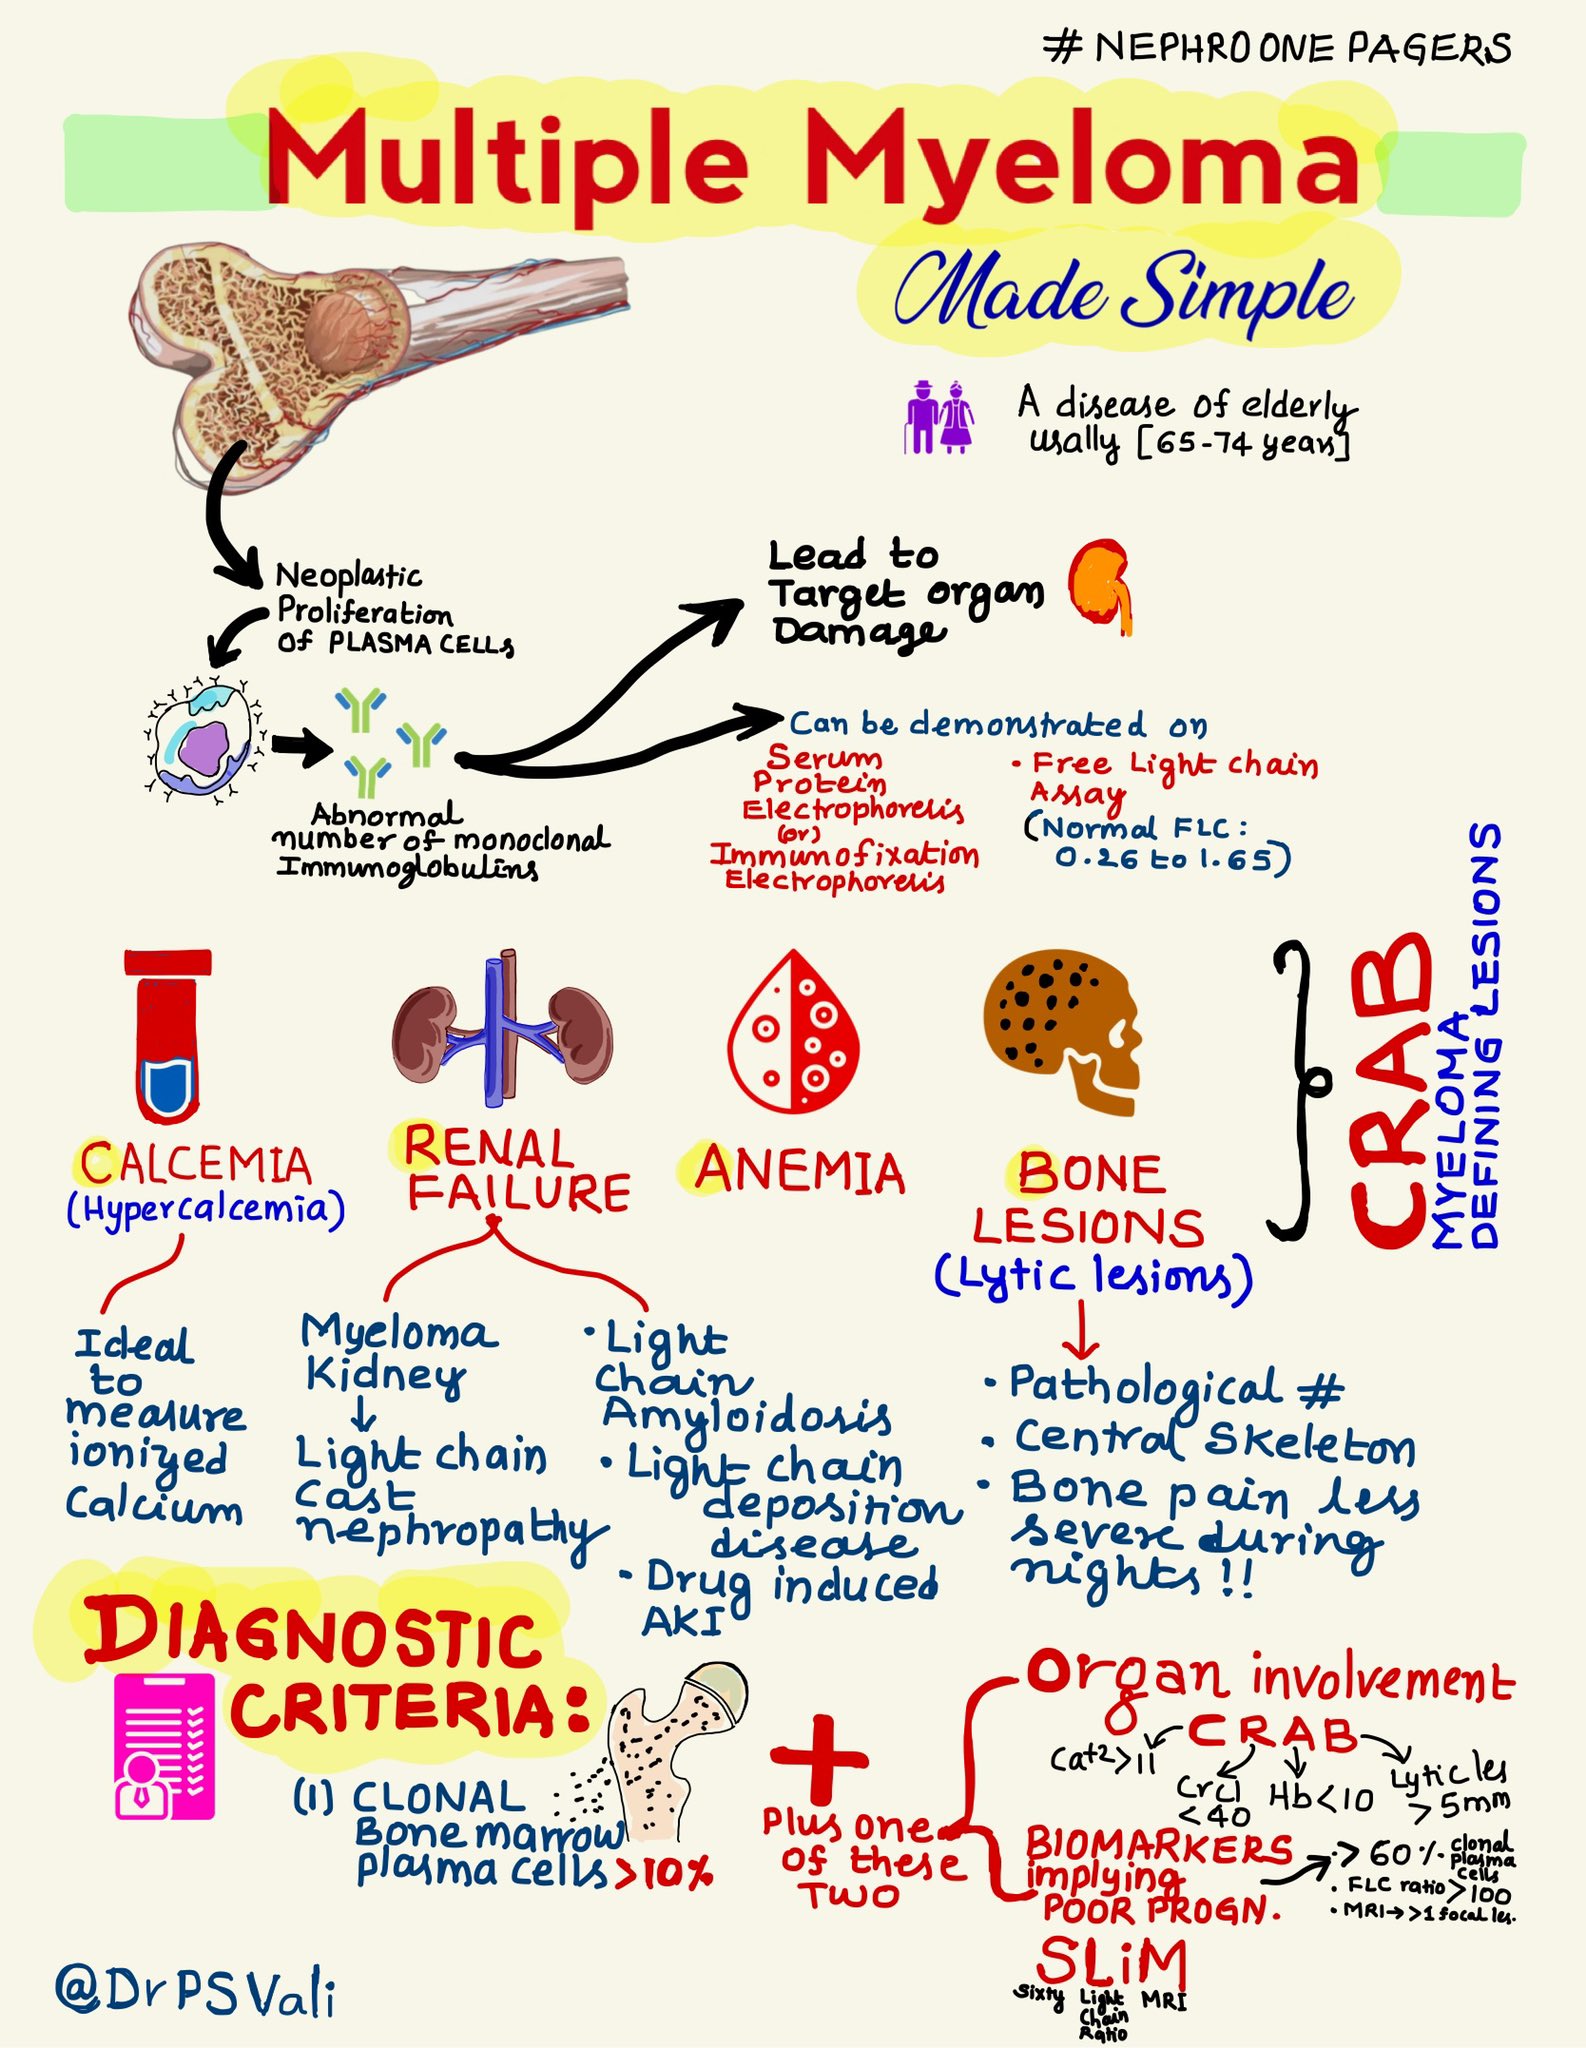 # NEPHRO ONE PAGERS
Multiple Myeloma
Made Simple
A disease of elderly
usally [65-74 years]
Neoplastic
Proliferation
Of PLASMA CELLS
Lead to
Target organ
Damage
Abnormal
number of monoclonal
Immunoglobulins
Can be demonstrated on
Serum
Protein
Electrophoresis
(or)
Immunofixation
Electrophoresis
• Free Light chain
Assay
(Normal FLC:
0.26 to 1.65)
CALCEMIA
(Hypercalcemia)
RENAL
FAILURE
ANEMIA
BONE
LESIONS
(Lytic lesions)
CRAB
MYELOMA
DEFINING LESIONS
Ideal
to
measure
ionized
Calcium
Myeloma
Kidney
↓
Light chain
Cast
nephropathy
• Light
Chain
Amyloidosis
• Light chain
deposition
disease
• Drug induced
AKI
• Pathological #
• Central Skeleton
• Bone pain less
severe during
nights !!
DIAGNOSTIC
CRITERIA:
(1) CLONAL
Bone marrow
plasma cells >10%
+
Plus one
of these
TWO
Organ involvement
CRAB
Ca+2>11
Crcl
<40
Hb<10
Lytic les
>5mm
BIOMARKERS
implying
POOR PROGN.
• >60% clonal
plasma
cells
• FLC ratio >100
• MRI→>1 focal les.
SLiM
Sixty
Light
Chain
Ratio
MRI
@DrPSVali